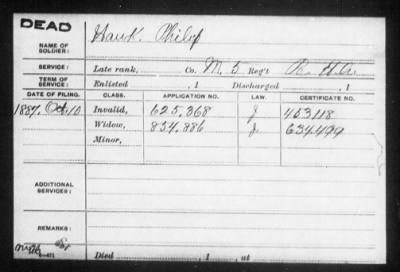 DEAD
NAME OF SOLDIER: Hawk. Philip
SERVICE: Late rank, Co. M. 5 Reg't R. H.A.
TERM OF SERVICE: Enlisted , 1 Discharged , 1
DATE OF FILING. CLASS. APPLICATION NO. LAW. CERTIFICATE NO.
1887. Oct. 10 Invalid, 625.368 J. 453118
Widow, 834.886 J. 634499
Minor,
ADDITIONAL SERVICES:
REMARKS:
Died , 1 , at